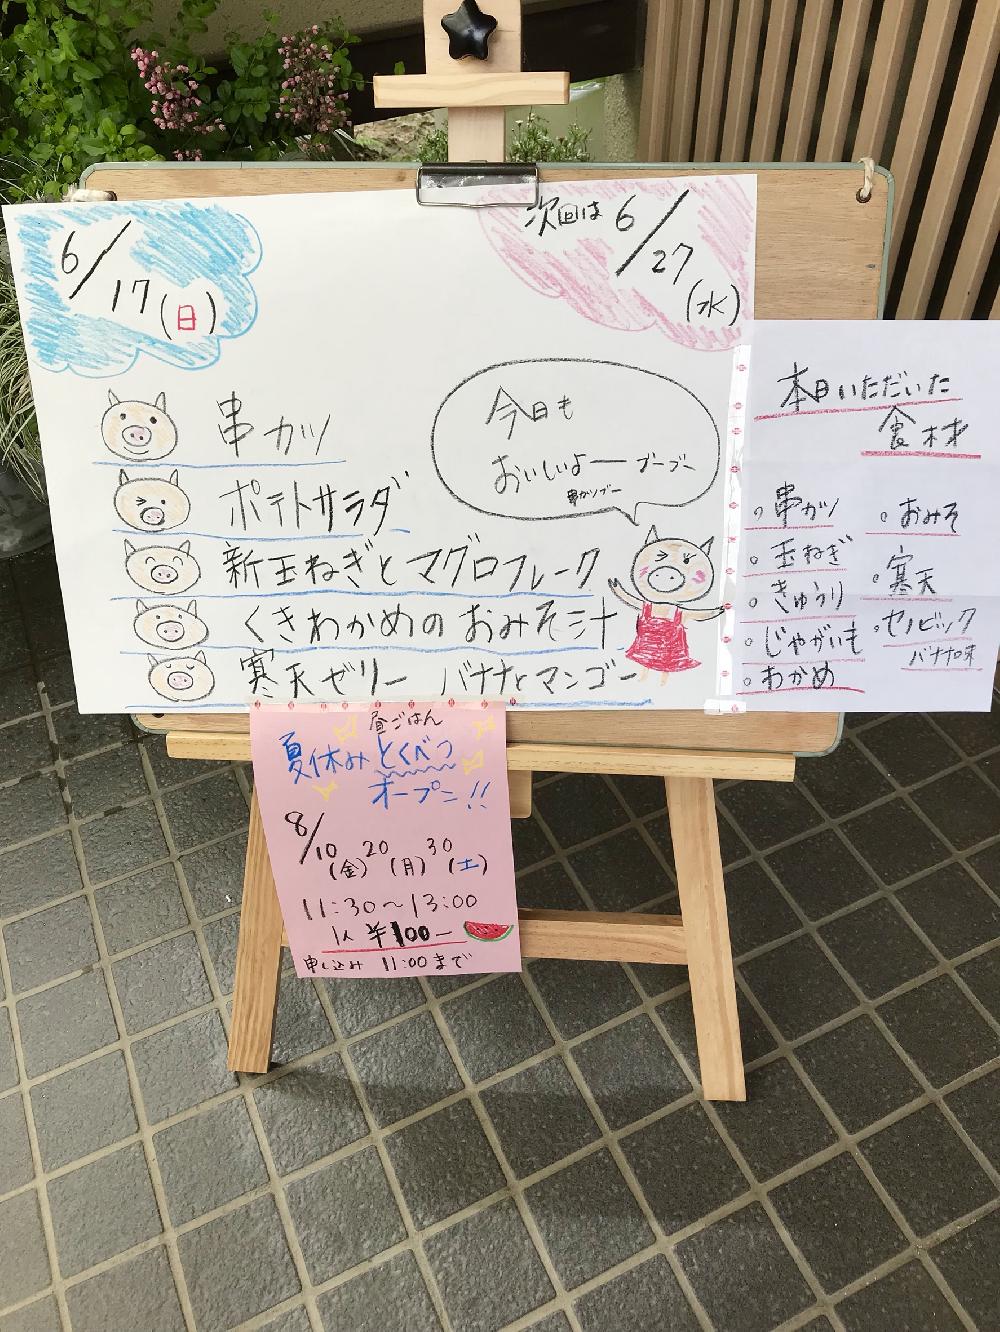 6/17(日)
次回は 6/27(水)
串カツ
ポテトサラダ
新玉ねぎとマグロフレーク
くきわかめのおみそ汁
寒天ゼリー バナナとマンゴー
今日も
おいしいよー ブーブー
串カツブー
本日いただいた
食材
串カツ
玉ねぎ
きゅうり
じゃがいも
わかめ
おみそ
寒天
セノビック
バナナ味
昼ごはん
夏休みとくべつ
オープン!!
8/10(金) 20(月) 30(土)
11:30〜13:00
1人 ¥100ー
申し込み 11:00まで